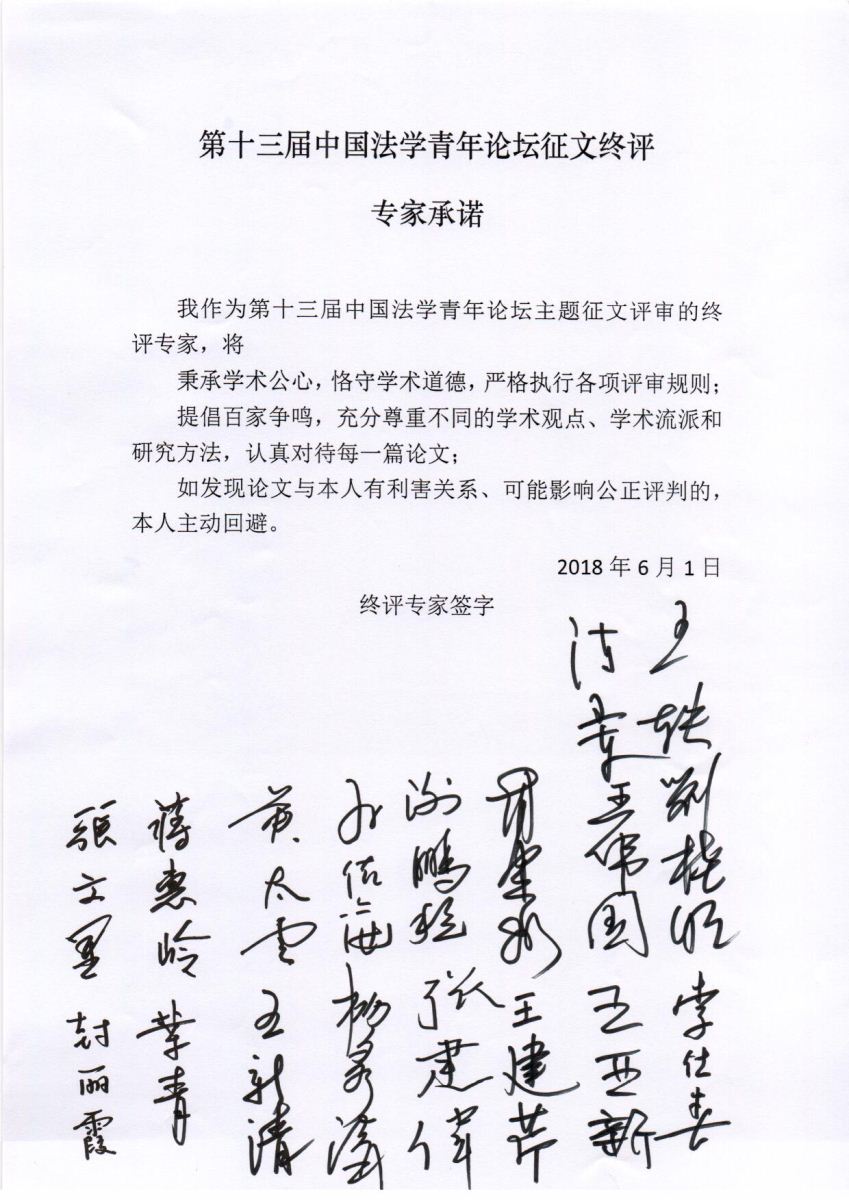 第十三届中国法学青年论坛征文终评
专家承诺
我作为第十三届中国法学青年论坛主题征文评审的终
评专家，将
秉承学术公心，恪守学术道德，严格执行各项评审规则；
提倡百家争鸣，充分尊重不同的学术观点、学术流派和
研究方法，认真对待每一篇论文；
如发现论文与本人有利害关系、可能影响公正评判的，
本人主动回避。
2018 年 6 月 1 日
终评专家签字
王轶
刘桂明
李仕春
王伟国
王亚新
王建芹
谢鹏程
张建伟
孙佑海
黄太云
王新清
蒋惠岭
叶青
張文显
封丽霞